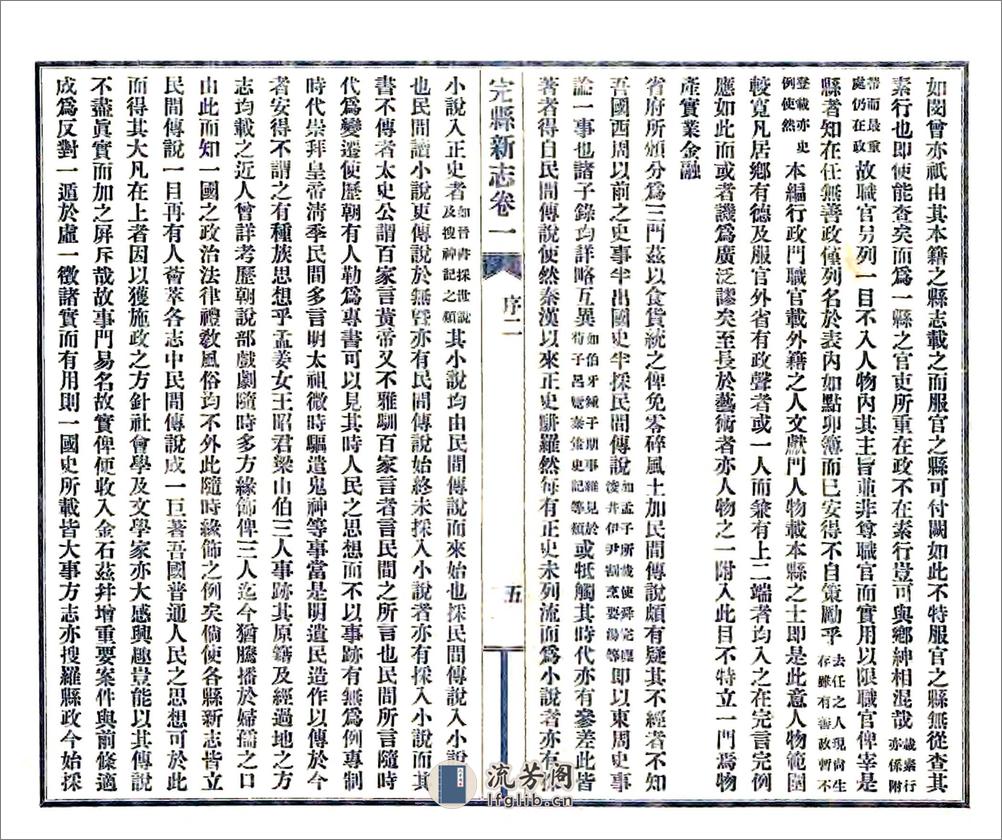 如閔曾亦祇由其本籍之縣志載之而服官之縣可付闕如此不特服官之縣無從查其
素行也即使能查矣而爲一縣之官吏所重在政不在素行豈可與鄉紳相混哉載素行亦係附
帶而最重處仍在政故職官另列一目不入人物內其主旨並非尊職官而實用以限職官俾宰是
縣者知在任無善政僅列名於表內如點卯簿而已安得不自策勵乎去任之人現尙生存雖有善政暫不
登載亦史例使然本編行政門職官載外籍之人文獻門人物載本縣之士即是此意人物範圍
較寬凡居鄉有德及服官外省有政聲者或一人而兼有上二端者均入之在完言完例
應如此而或者譏爲廣泛謬矣至長於藝術者亦人物之一附入此目不特立一門爲物
產實業金融
省府所頒分爲三門茲以食貨統之俾免零碎風土加民間傳說頗有疑其不經者不知
吾國西周以前之史事半出國史半採民間傳說如孟子所載使舜完廩浚井伊尹割烹要湯等即以東周史事
論一事也諸子錄均詳略互異如伯牙鍾子期事雜見於荀子呂覽秦策史記等類或牴觸其時代亦有參差此皆
著者得自民間傳說使然秦漢以來正史駢羅然每有正史未列流而爲小說者亦有
完縣新志卷一 序二 五
小說入正史者如晉書採世說及搜神記之類其小說均由民間傳說而來始也採民間傳說入小說
也民間讀小說更傳說於無暨亦有民間傳說始終未採入小說者亦有採入小說而其
書不傳者太史公謂百家言黃帝又不雅馴百家言者言民間之所言也民間所言隨時
代爲變遷使歷朝有人勒爲專書可以見其時人民之思想而不以事跡有無爲例專制
時代崇拜皇帝淸季民間多言明太祖微時驅遣鬼神等事當是明遺民造作以傳於今
者安得不謂之有種族思想乎孟姜女王昭君梁山伯三人事跡其原籍及經過地之方
志均載之近人曾詳考歷朝說部戲劇隨時多方緣飾俾三人迄今猶騰播於婦孺之口
由此而知一國之政治法律禮敎風俗均不外此隨時緣飾之例矣倘使各縣新志皆立
民間傳說一目再有人薈萃各志中民間傳說成一巨著吾國普通人民之思想可於此
而得其大凡在上者因以獲施政之方針社會學及文學家亦大感興趣豈能以其傳說
不盡眞實而加之屏斥哉故事門易名故實俾便收入金石茲并增重要案件與前條適
成爲反對一遁於虛一徵諸實而有用則一國史所載皆大事方志亦搜羅縣政今始採
流芳閣
lfglib.cn